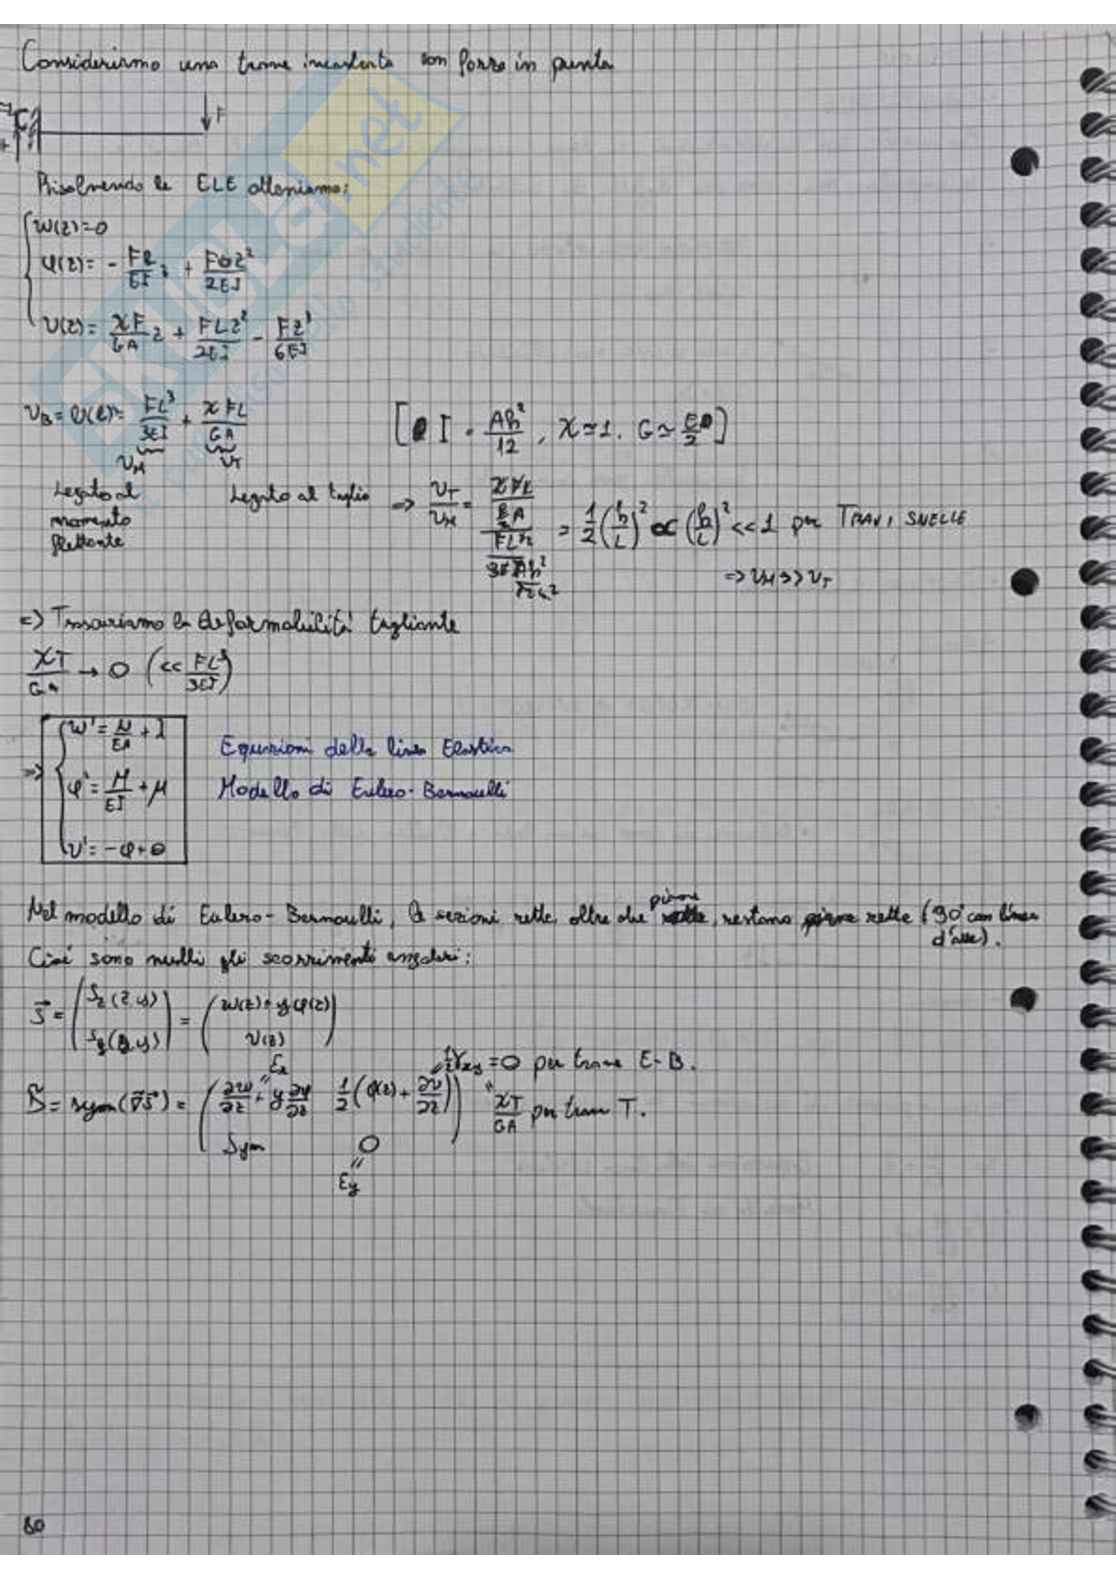 Consideriamo una trave incastrata con forza in punta
F
Risolvendo le ELE otteniamo:
w(z)=0
φ(z)= - FL/EI z + Fz²/2EI
v(z)= χF/GA z + FLz²/2EI - Fz³/6EI
v_B = v(l)= FL³/3EI + χFL/GA [ I = Ah²/12 , χ≃1. G≃E/2 ]
v_M v_T
Legato al momento flettente
Legato al taglio => v_T/v_M = = 1/2 (h/L)² ∝ (h/L)² <<1 per TRAVI SNELLE
=> v_M >> v_T
=> Trascuriamo la deformabilità tagliante
χT/GA → 0 (<< FL³/3EI)
=> w' = N/EA + λ
φ' = M/EI + μ
v' = -φ+θ
Equazioni della linea Elastica
Modello di Eulero-Bernoulli
Nel modello di Eulero-Bernoulli, le sezioni rette, oltre che piane, restano rette (90° con linea d'asse).
Cioè sono nulli gli scorrimenti angolari:
S = (S_z(z,y) S_y(z,y)) = (w(z)+yφ(z) v(z))
ε_z ½γ_xy = 0 per trave E-B.
D = sym(∇S) = (∂w/∂z + y ∂φ/∂z ½(φ(z)+ ∂v/∂z)) " χT/GA per trave T.
Sym 0
" ε_y
80